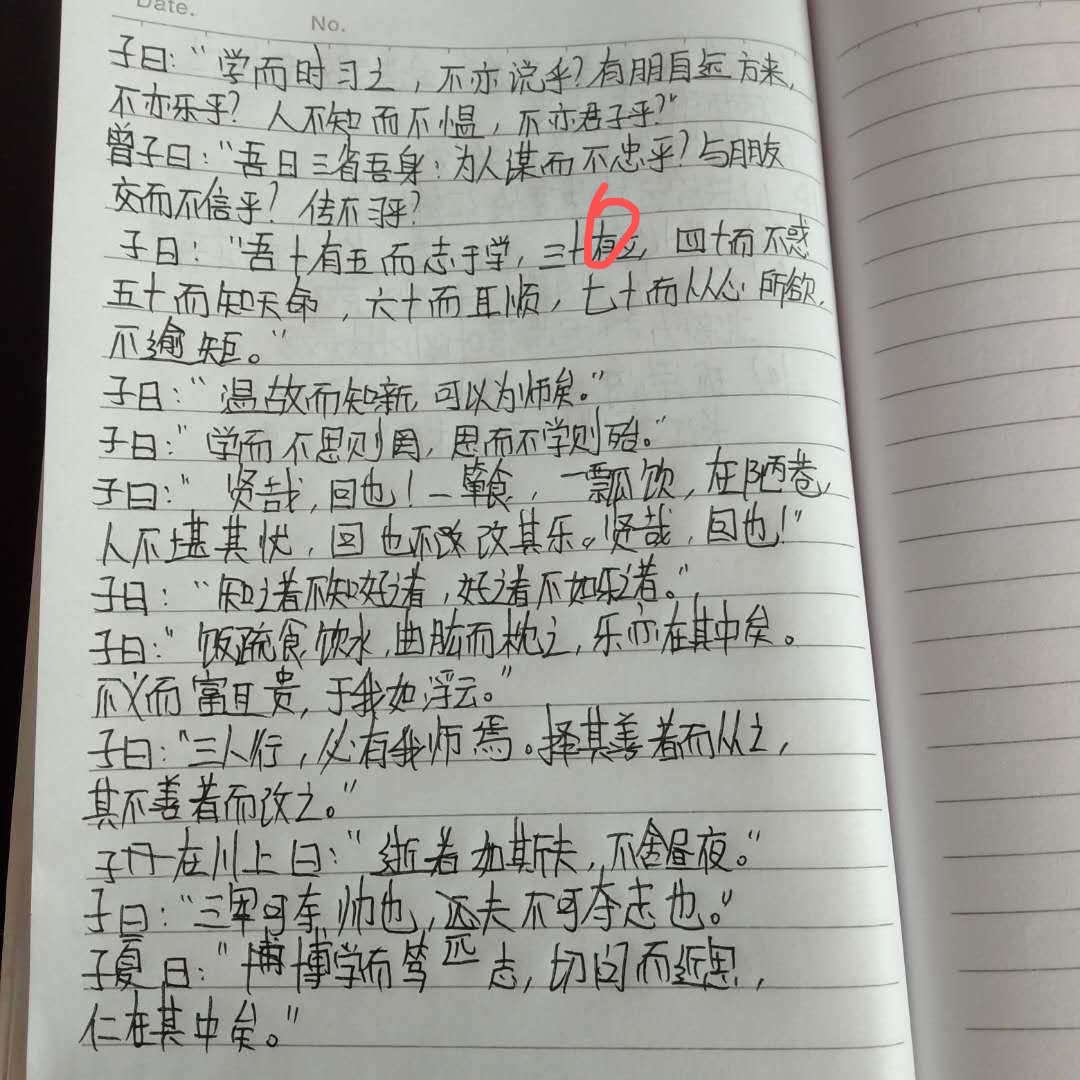 Date.
No.
子曰：“学而时习之，不亦说乎？有朋自远方来，
不亦乐乎？人不知而不愠，不亦君子乎？”
曾子曰：“吾日三省吾身：为人谋而不忠乎？与朋友
交而不信乎？传不习乎？
子曰：“吾十有五而志于学，三十有立，四十而不惑
五十而知天命，六十而耳顺，七十而从心所欲，
不逾矩。”
子曰：“温故而知新，可以为师矣。”
子曰：“学而不思则罔，思而不学则殆。”
子曰：“贤哉，回也！一箪食，一瓢饮，在陋巷，
人不堪其忧，回也不改改其乐。贤哉，回也！”
子曰：“知之者不知好之者，好之者不如乐之者。”
子曰：“饭疏食饮水，曲肱而枕之，乐亦在其中矣。
不义而富且贵，于我如浮云。”
子曰：“三人行，必有我师焉。择其善者而从之，
其不善者而改之。”
子在川上曰：“逝者如斯夫，不舍昼夜。”
子曰：“三军可夺帅也，匹夫不可夺志也。”
子夏曰：“博学而笃志，切问而近思，
仁在其中矣。”